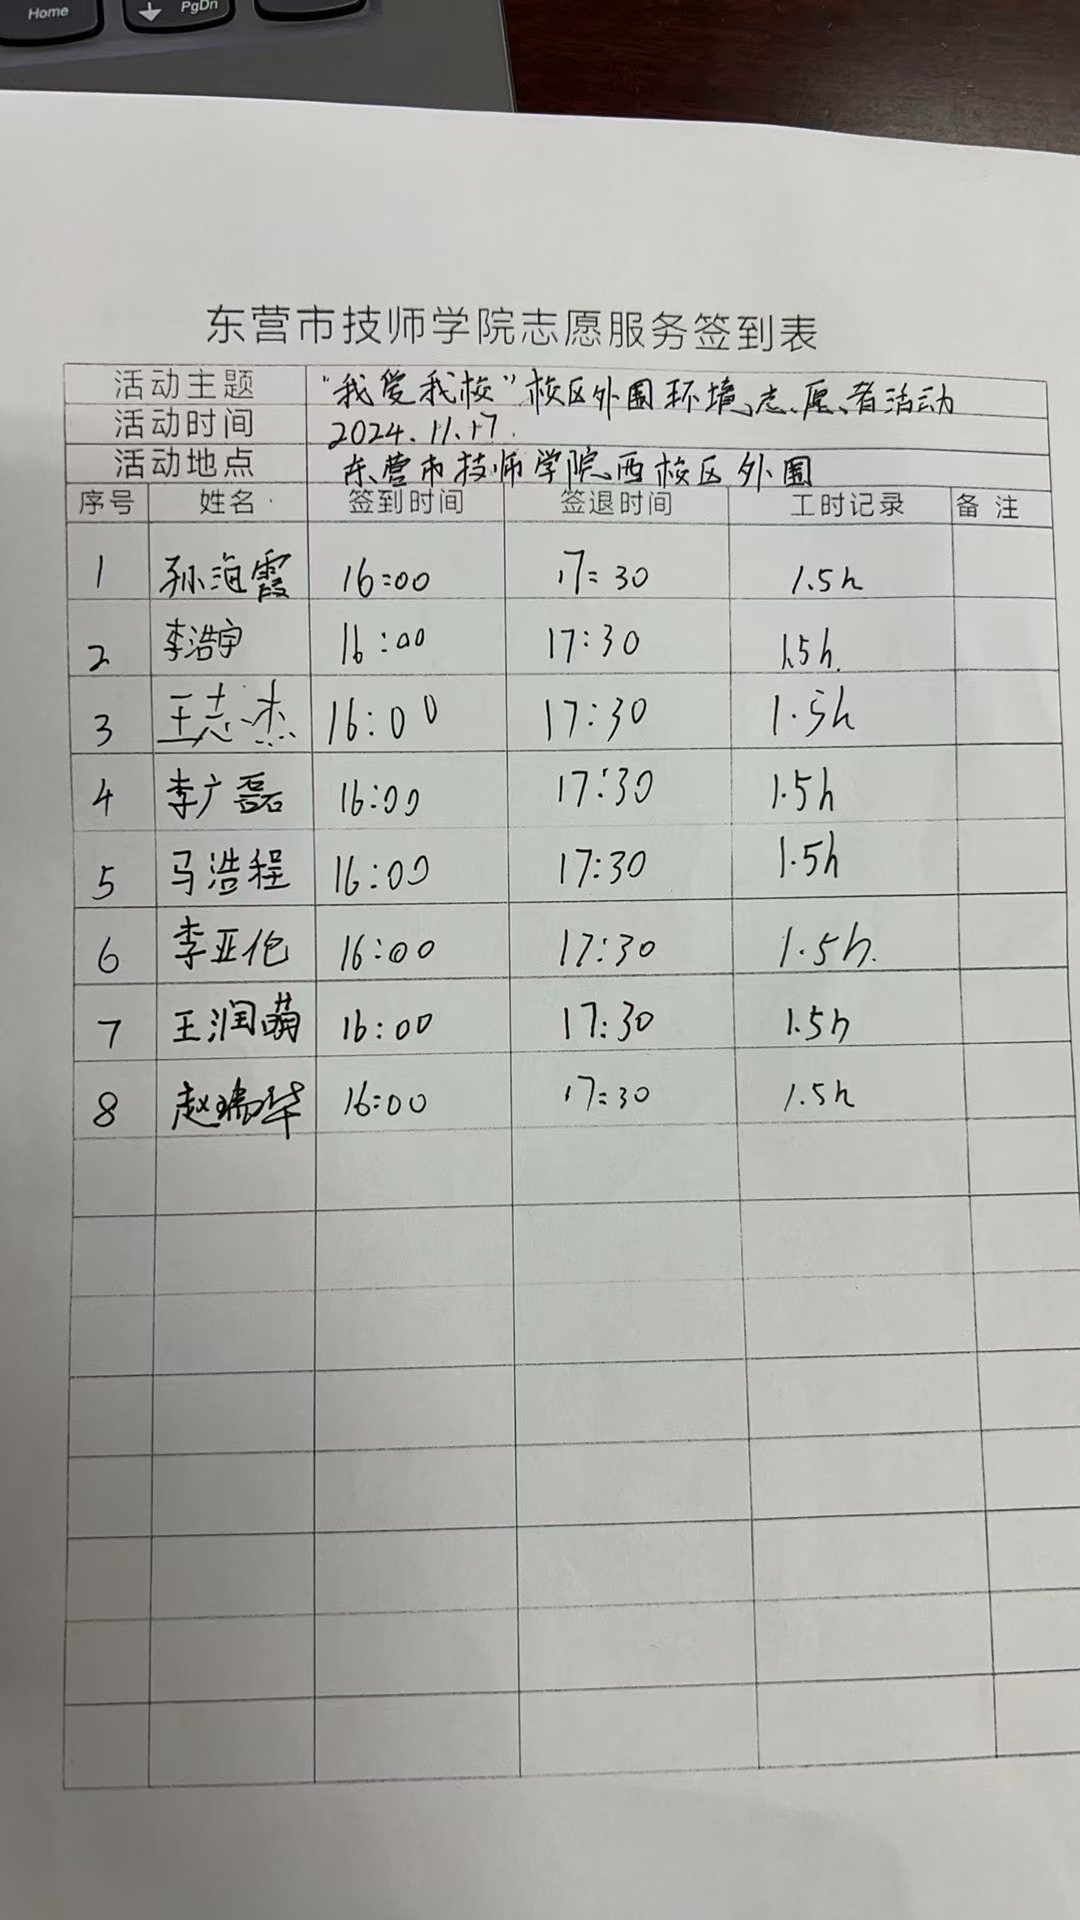 Home
PgDn
东营市技师学院志愿服务签到表
活动主题 "我爱我校"校区外围环境志愿者活动
活动时间 2024.11.17.
活动地点 东营市技师学院西校区外围
序号 姓名 签到时间 签退时间 工时记录 备注
1 孙海霞 16:00 17:30 1.5h
2 李浩宇 16:00 17:30 1.5h.
3 王志杰 16:00 17:30 1.5h
4 李广磊 16:00 17:30 1.5h
5 马浩程 16:00 17:30 1.5h
6 李亚伦 16:00 17:30 1.5h.
7 王润萌 16:00 17:30 1.5h
8 赵瑞华 16:00 17:30 1.5h